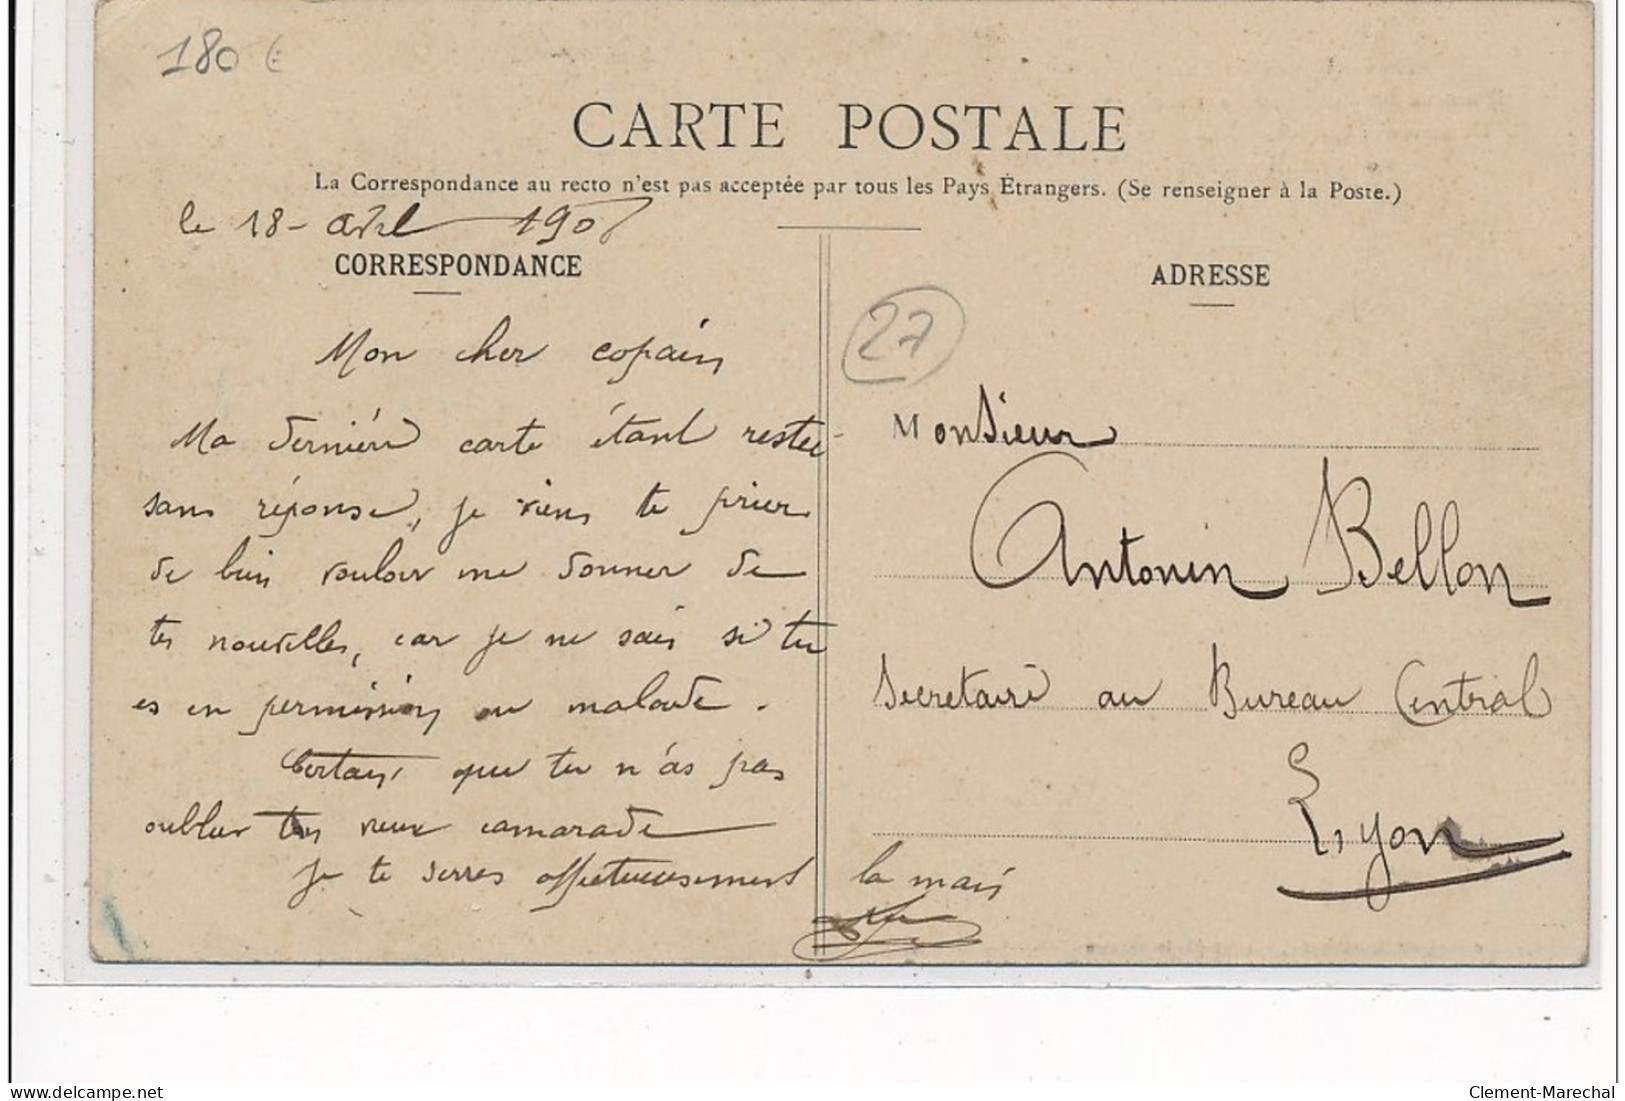 180 €
CARTE POSTALE
La Correspondance au recto n'est pas acceptée par tous les Pays Étrangers. (Se renseigner à la Poste.)
le 18 - avril 190
CORRESPONDANCE
Mon cher copain
Ma dernière carte étant restée
sans réponse, je viens te prier
de bien vouloir me donner de
tes nouvelles, car je ne sais si tu
es en permission ou malade.
Certain que tu n'as pas
oublier ton vieux camarade
Je te serres affectueusement
la main
ADRESSE
27
Monsieur
Antonin Bellon
Secretaire au Bureau Central
Lyon
delcampe.net
Clement-Marechal